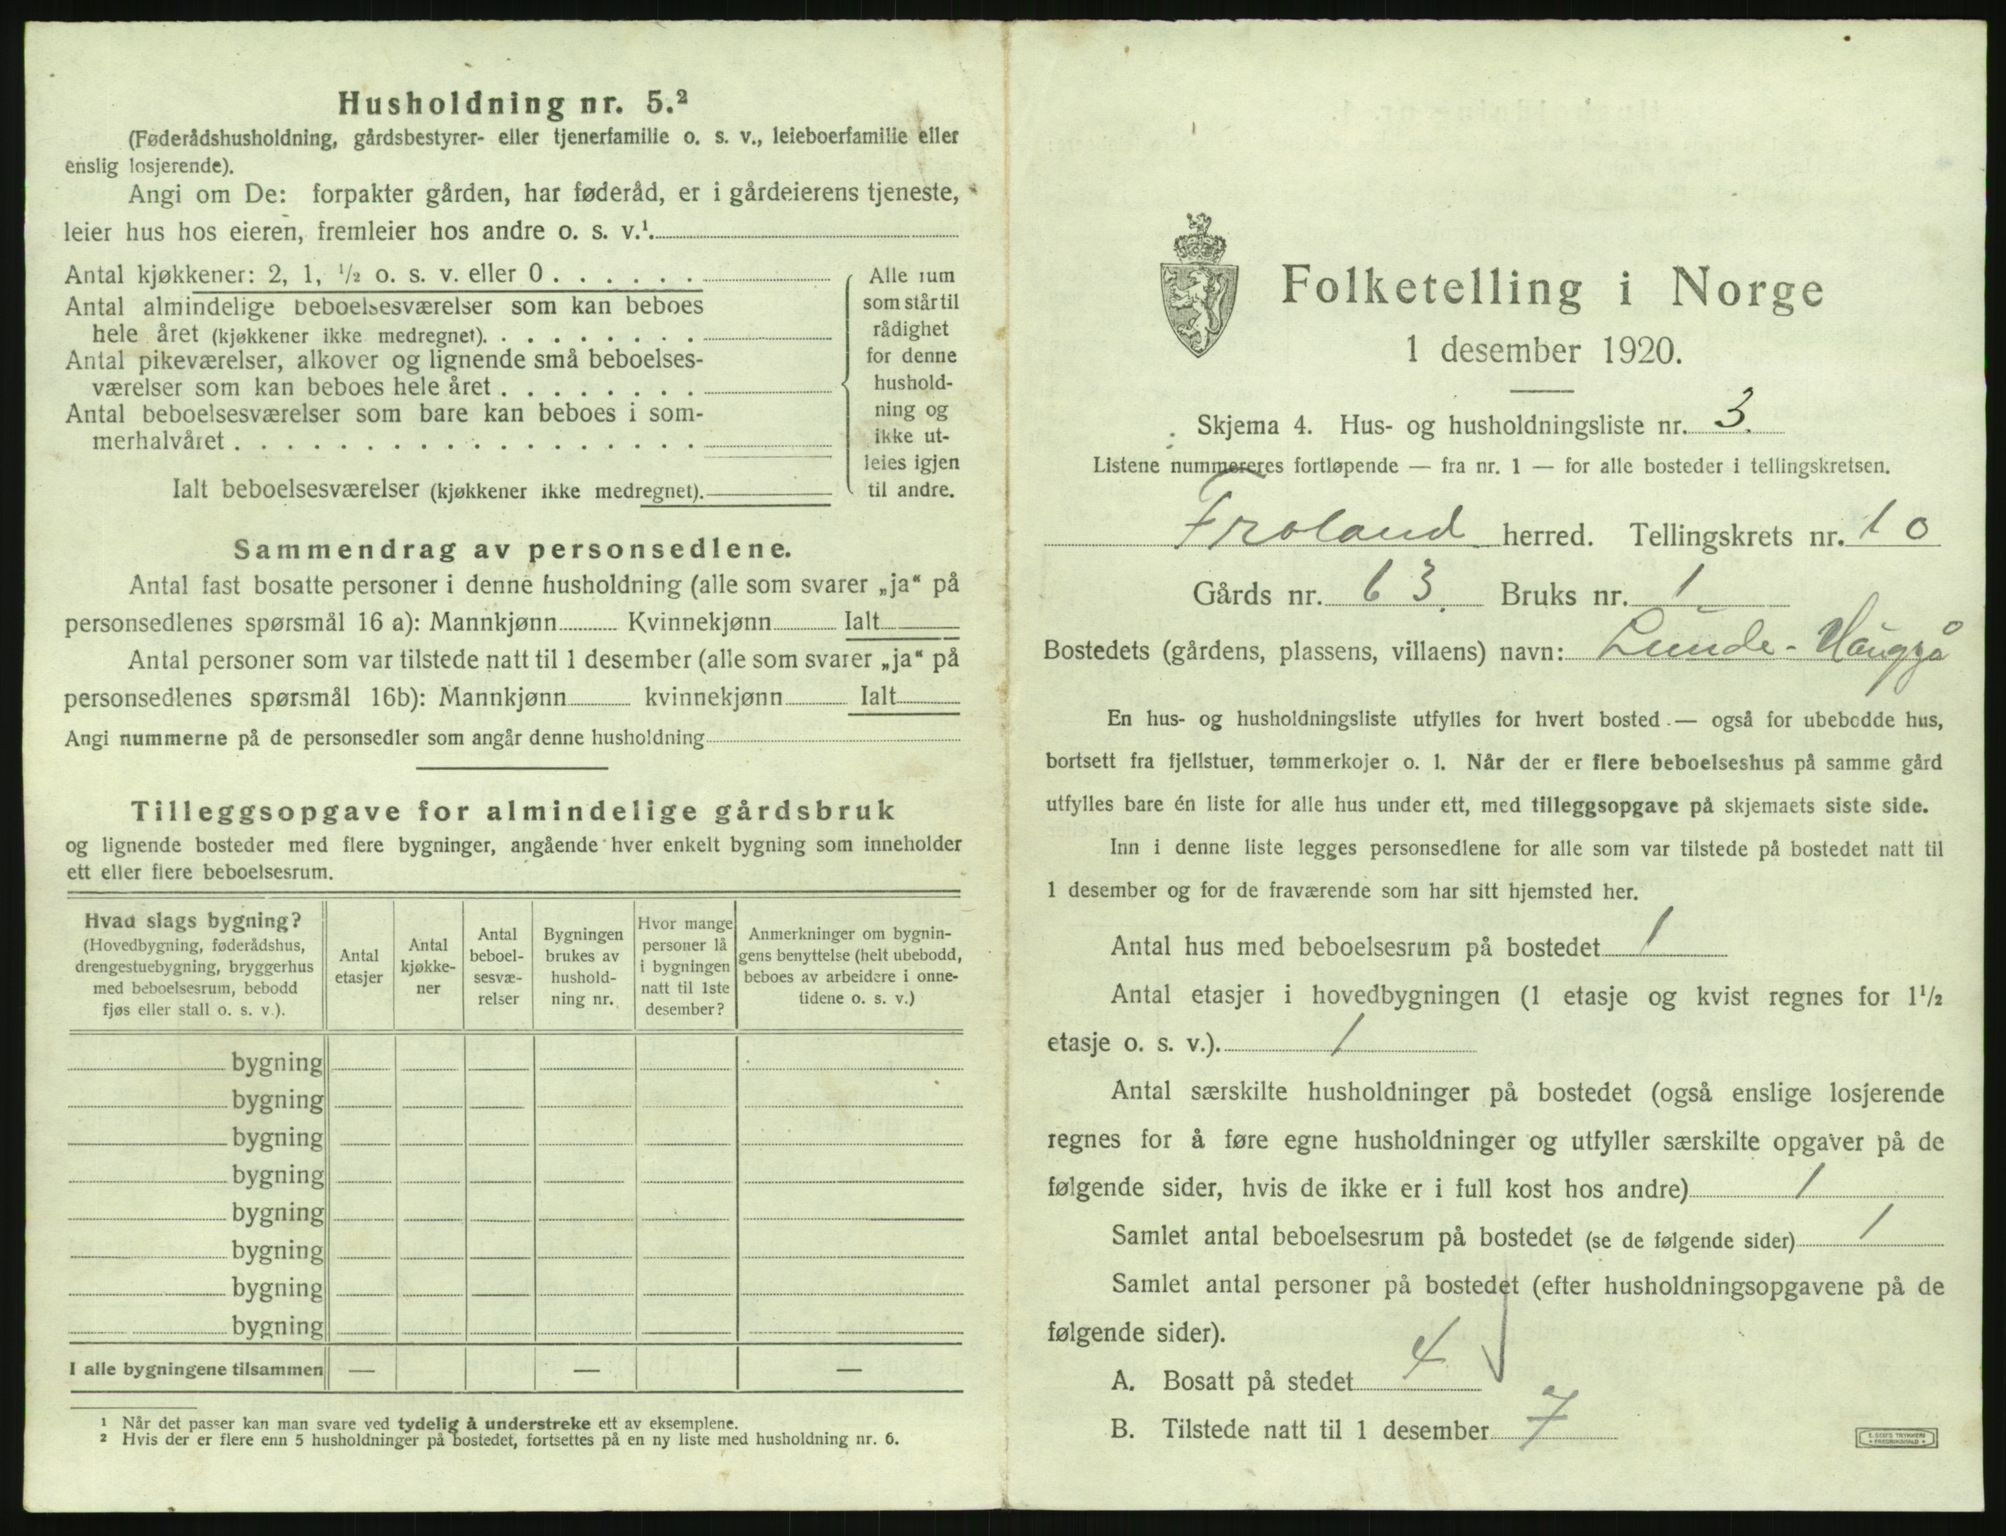 Husholdning nr. 5.²
(Føderådshusholdning, gårdsbestyrer- eller tjenerfamilie o. s. v., leieboerfamilie eller
enslig losjerende).
Angi om De: forpakter gården, har føderåd, er i gårdeierens tjeneste,
leier hus hos eieren, fremleier hos andre o. s. v.¹.
Antal kjøkkener: 2, 1, ½ o. s. v. eller 0 . . . . . .
Antal almindelige beboelsesværelser som kan beboes
hele året (kjøkkener ikke medregnet). . . . . . . . .
Antal pikeværelser, alkover og lignende små beboelses-
værelser som kan beboes hele året . . . . . . . .
Antal beboelsesværelser som bare kan beboes i som-
merhalvåret . . . . . . . . . . . . . . . . . .
Ialt beboelsesværelser (kjøkkener ikke medregnet).
Alle rum
som står til
rådighet
for denne
hushold-
ning og
ikke ut-
leies igjen
til andre.
Sammendrag av personsedlene.
Antal fast bosatte personer i denne husholdning (alle som svarer „ja“ på
personsedlenes spørsmål 16 a): Mannkjønn Kvinnekjønn Ialt
Antal personer som var tilstede natt til 1 desember (alle som svarer „ja“ på
personsedlenes spørsmål 16b): Mannkjønn kvinnekjønn Ialt
Angi nummerne på de personsedler som angår denne husholdning
Tilleggsopgave for almindelige gårdsbruk
og lignende bosteder med flere bygninger, angående hver enkelt bygning som inneholder
ett eller flere beboelsesrum.
Hvad slags bygning?
(Hovedbygning, føderådshus,
drengestuebygning, bryggerhus
med beboelsesrum, bebodd
fjøs eller stall o. s. v.).
Antal
etasjer
Antal
kjøkke-
ner
Antal
beboel-
sesvæ-
relser
Bygningen
brukes av
hushold-
ning nr.
Hvor mange
personer lå
i bygningen
natt til 1ste
desember?
Anmerkninger om bygnin-
gens benyttelse (helt ubebodd,
beboes av arbeidere i onne-
tidene o. s. v.)
bygning
bygning
bygning
bygning
bygning
bygning
bygning
bygning
I alle bygningene tilsammen — — —
¹ Når det passer kan man svare ved tydelig å understreke ett av eksemplene.
² Hvis der er flere enn 5 husholdninger på bostedet, fortsettes på en ny liste med husholdning nr. 6.
Folketelling i Norge
1 desember 1920.
Skjema 4. Hus- og husholdningsliste nr. 3.
Listene nummereres fortløpende — fra nr. 1 — for alle bosteder i tellingskretsen.
Froland herred. Tellingskrets nr. 10
Gårds nr. 63. Bruks nr. 1
Bostedets (gårdens, plassens, villaens) navn: Lunde-
En hus- og husholdningsliste utfylles for hvert bosted — også for ubebodde hus,
bortsett fra fjellstuer, tømmerkojer o. l. Når der er flere beboelseshus på samme gård
utfylles bare én liste for alle hus under ett, med tilleggsopgave på skjemaets siste side.
Inn i denne liste legges personsedlene for alle som var tilstede på bostedet natt til
1 desember og for de fraværende som har sitt hjemsted her.
Antal hus med beboelsesrum på bostedet 1
Antal etasjer i hovedbygningen (1 etasje og kvist regnes for 1½
etasje o. s. v.). 1
Antal særskilte husholdninger på bostedet (også enslige losjerende
regnes for å føre egne husholdninger og utfyller særskilte opgaver på de
følgende sider, hvis de ikke er i full kost hos andre) 1
Samlet antal beboelsesrum på bostedet (se de følgende sider) 1
Samlet antal personer på bostedet (efter husholdningsopgavene på de
følgende sider).
A. Bosatt på stedet 4
B. Tilstede natt til 1 desember 7